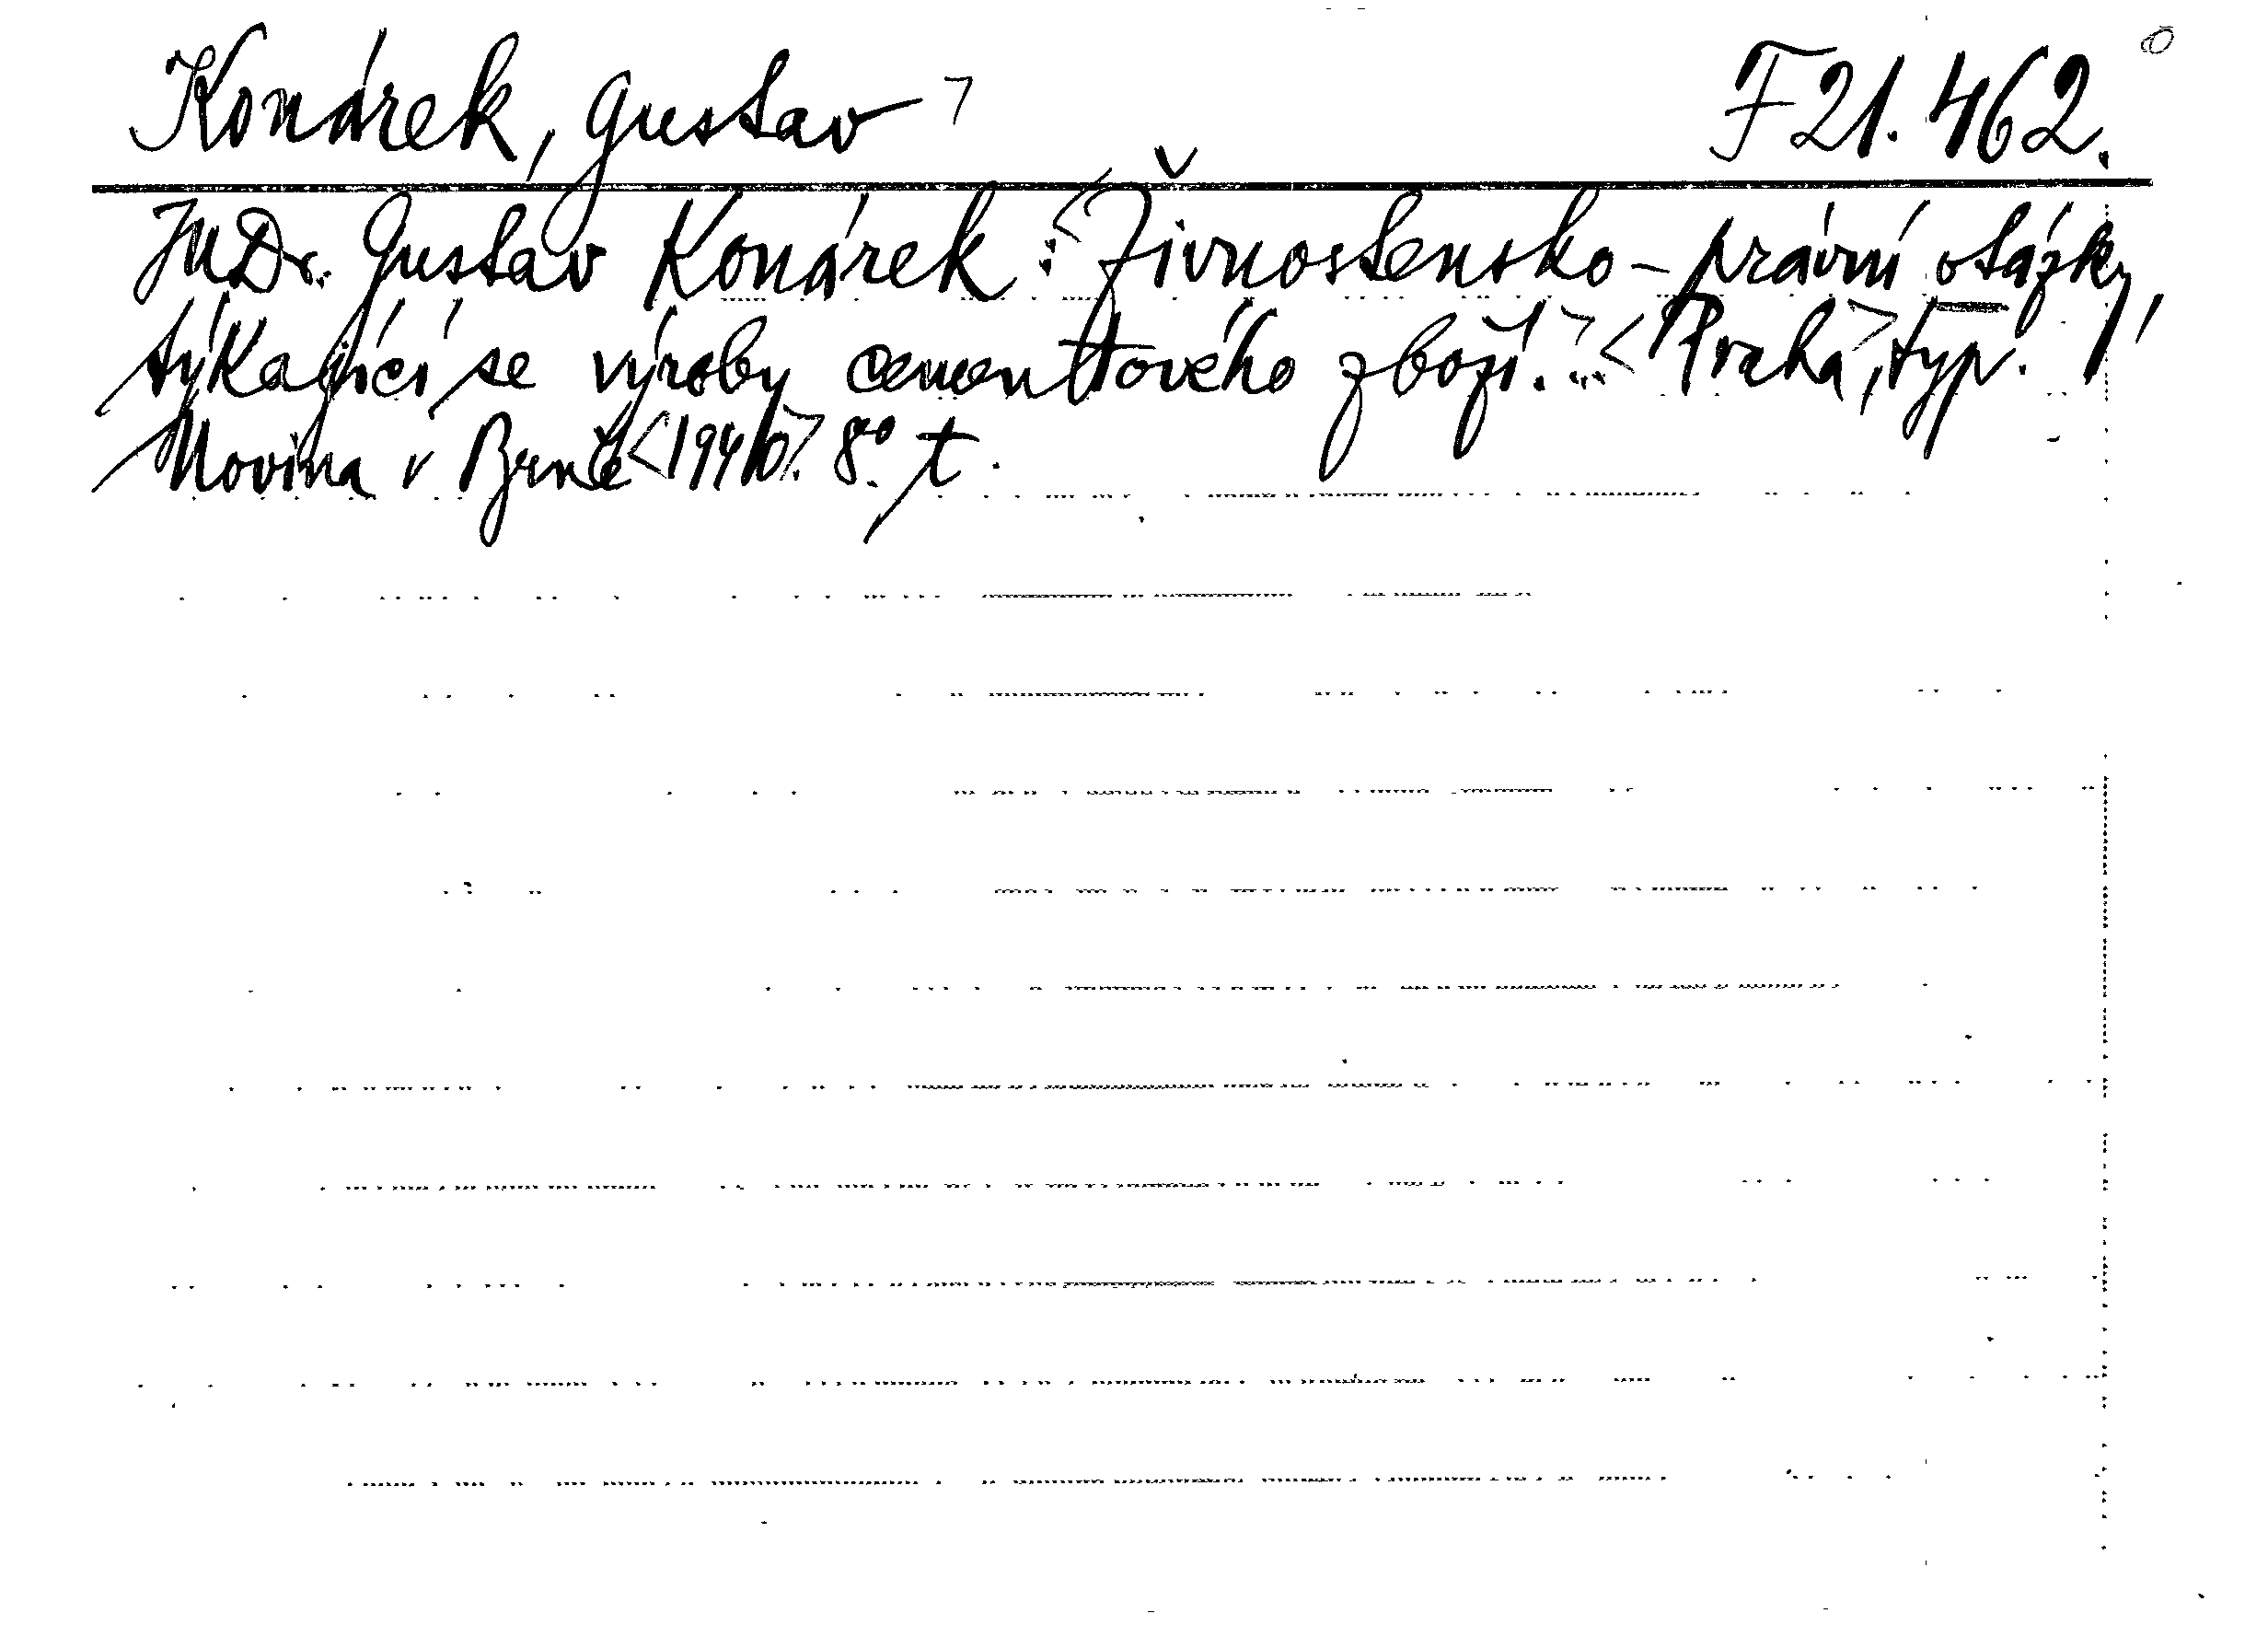 Konárek, Gustav > F 21.462.
JUDr. Gustav Konárek: <Živnostensko-právní otázky,
týkající se výroby cementového zboží.>...<Praha>, typ.
Novina v Brně <1940>. 8°. t.